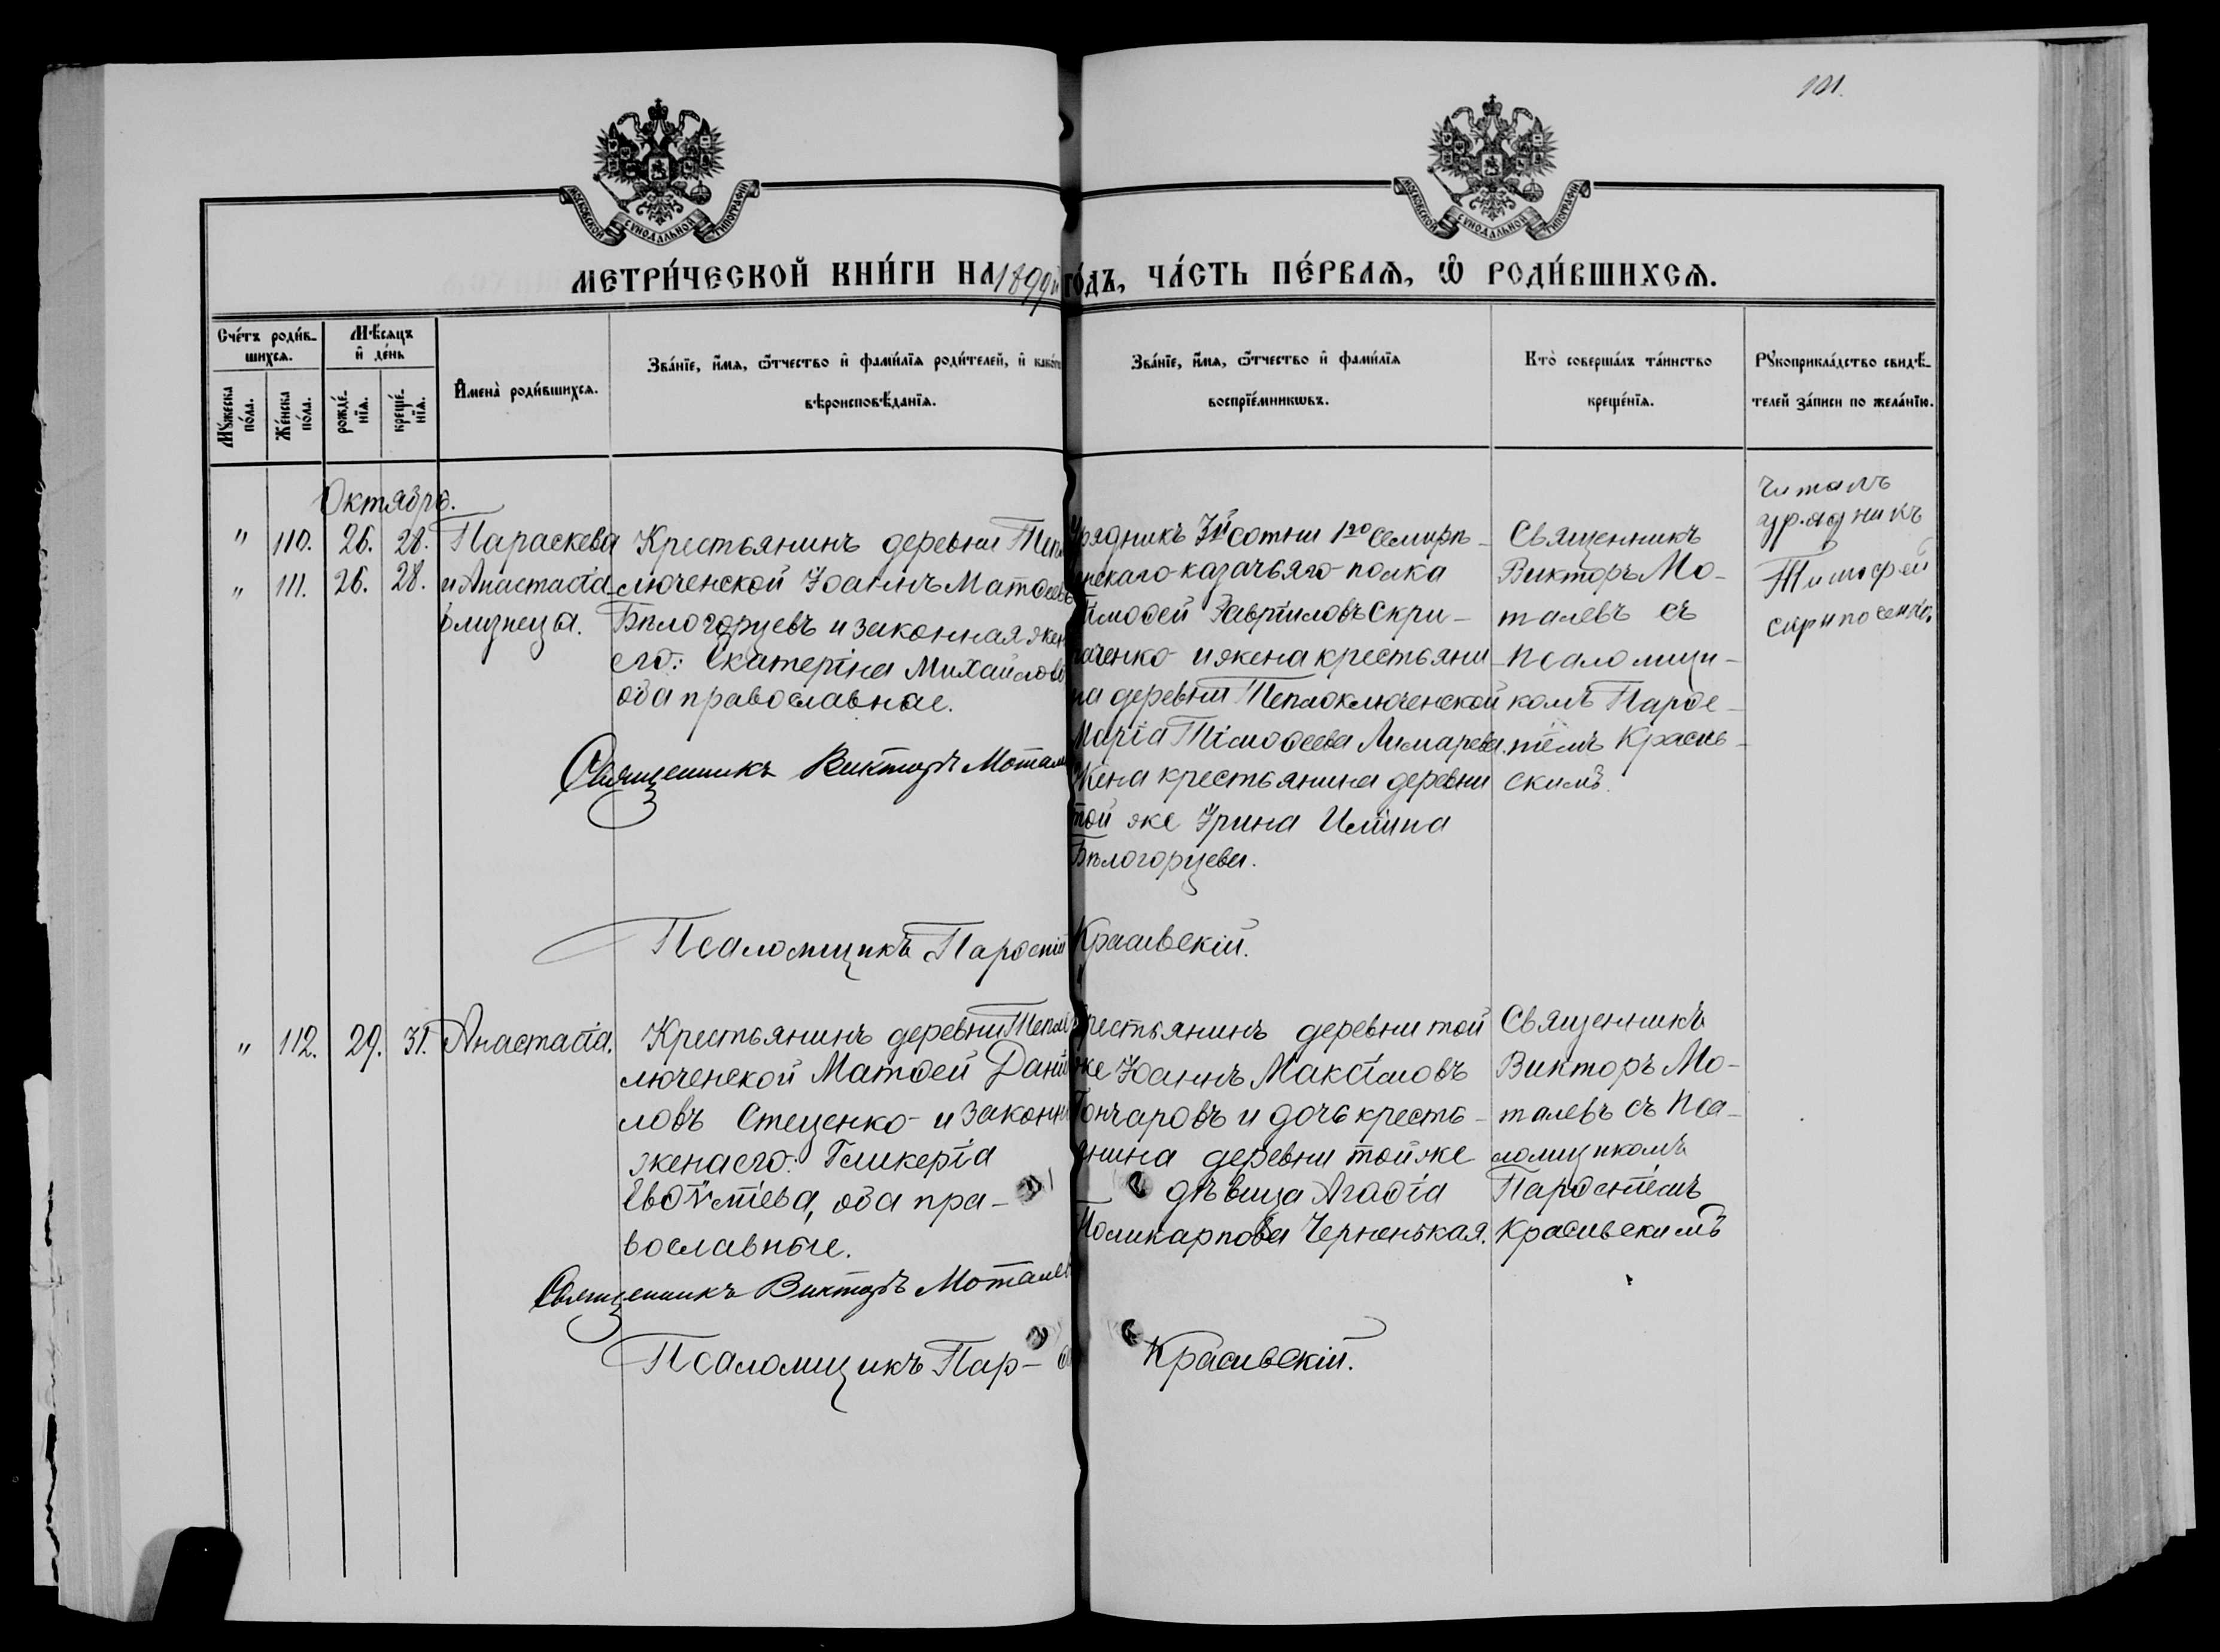 101.
МОСКОВСКОЙ СѴНОДАЛЬНОЙ ТИПОГРАФІИ
МОСКОВСКОЙ СѴНОДАЛЬНОЙ ТИПОГРАФІИ
МЕТРИ́ЧЕСКОЙ КНИ́ГИ НА 1899й ГО́ДЪ, ЧА́СТЬ ПЕ́РВАѦ, Ѡ҆ РОДИ́ВШИХСѦ.
Сче́тъ роди́в-
шихсѧ.
Мꙋ́жеска по́ла.
Же́нска по́ла.
Мѣ́сѧцъ
и҆ де́нь
рожде́-нїѧ.
креще́-нїѧ.
И҆мена̀ роди́вшихсѧ.
Зва́нїе, и҆́мѧ, ѻ҆́тчество и҆ фами́лїѧ роди́телей, и҆ како́гѡ
вѣроисповѣ́данїѧ.
Зва́нїе, и҆́мѧ, ѻ҆́тчество и҆ фами́лїѧ
воспрїе́мникѡвъ.
Кто̀ соверша́лъ та́инство
креще́нїѧ.
Рꙋкоприкла́дство свидѣ́-
телей за́писи по жела́нїю.
Октябрь.
" 110. 26. 28. Параскева
" 111. 26. 28. и Анастасіа
близнецы.
Крестьянинъ деревни Теп
люченской Іоаннъ Матѳеевъ
Бѣлогорцевъ и законная жен
его: Екатеріна Михайлов
оба православные.
Священникъ Викторъ Мотал
Урядникъ 3й сотни 1го Семирѣ-
енскаго казачьяго полка
Тімоѳей Гавріиловъ Скри-
паченко и жена крестьяни-
на деревни Теплоключенской
Маріа Тімоѳеева Лимарева.
Жена крестьянина деревни
той же Ірина Иліина
Бѣлогорцева.
Священникъ
Викторъ Мо-
талевъ съ
псаломщи-
комъ Парѳе-
ніемъ Красив-
скимъ.
Читалъ
урядникъ
Тимофей
Псаломщикъ Парѳеній Красивскій.
" 112. 29. 31. Анастасіа.
Крестьянинъ деревни Тепло
люченской Матѳей Даніи
ловъ Стеценко и законн
жена его: Гликеріа
Евѳѵміева, оба пра-
вославные.
Священникъ Викторъ Моталев
Крестьянинъ деревни той
же Іоаннъ Максімовъ
Гончаровъ и дочь кресть-
янина деревни той же
дѣвица Агаѳіа
Поликарпова Черненькая.
Священникъ
Викторъ Мо-
талевъ съ пса-
ломщикомъ
Парѳеніемъ
Красивскимъ
Псаломщикъ Пар- Красивскій.